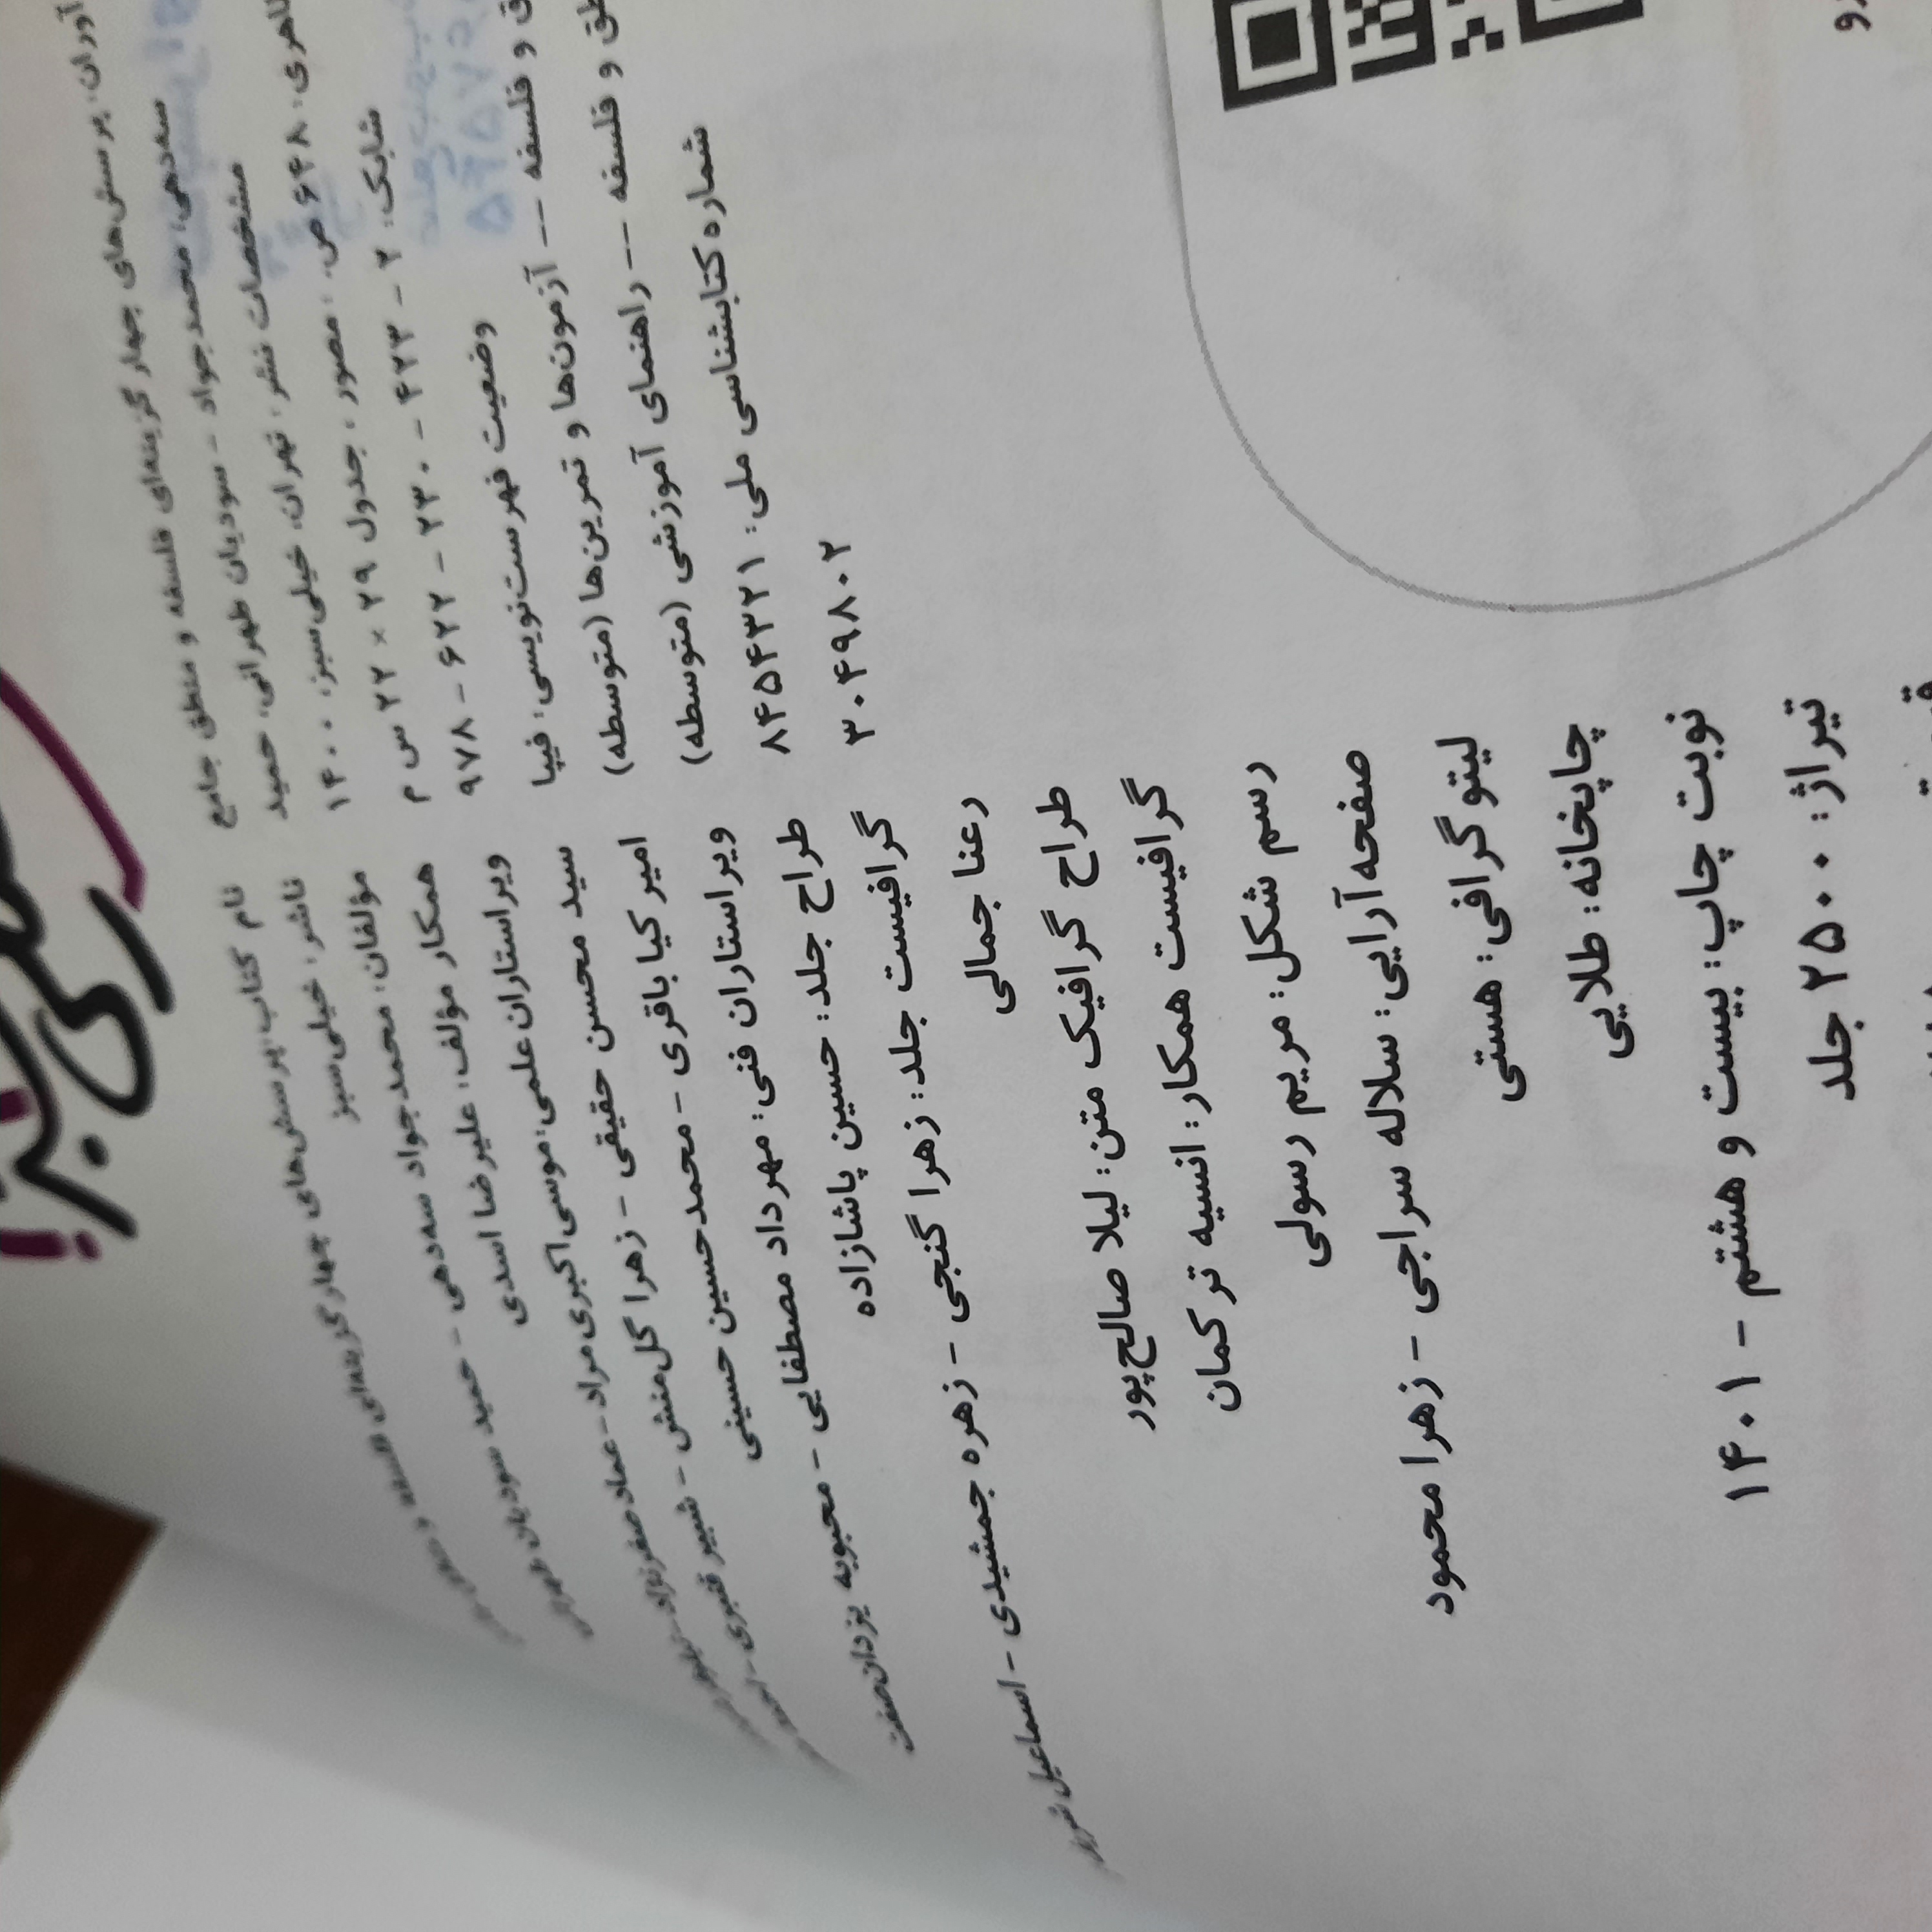 نام کتاب: پرسش‌های چهارگزینه‌ای فلسفه و منطق جامع
ناشر: خیلی سبز
مؤلفان: محمدجواد سه‌دهی - حمید سودیان طهرانی
همکار مؤلف: علیرضا اسدی
ویراستاران علمی: موسی اکبری مراد - عماد صفرنژاد
سید محسن حقیقی - زهرا گل‌منش - شبیر قنبری
امیر کیا باقری - محمدحسین حسینی
ویراستاران فنی: مهرداد مصطفایی - محبوبه یزدان‌صفت
طراح جلد: حسین پاشازاده
گرافیست جلد: زهرا گنجی - زهره جمشیدی - اسماعیل
رعنا جمالی
طراح گرافیک متن: لیلا صالح‌پور
گرافیست همکار: انسیه ترکمان
رسم شکل: مریم رسولی
صفحه‌آرایی: سلاله سراجی - زهرا محمود
لیتوگرافی: هستی
چاپخانه: طلایی
نوبت چاپ: بیست و هشتم - ۱۴۰۱
تیراژ: ۲۵۰۰ جلد
آوران: پرسش‌های چهارگزینه‌ای فلسفه و منطق جامع
سه‌دهی، محمدجواد - سودیان طهرانی، حمید
مشخصات نشر: تهران، خیلی سبز، ۱۴۰۰
۶۴۸ ص.: مصور، جدول ۲۹ × ۲۲ س م
شابک: ۲ - ۴۲۳ - ۲۳۰ - ۶۲۲ - ۹۷۸
وضعیت فهرست‌نویسی: فیپا
و فلسفه -- آزمون‌ها و تمرین‌ها (متوسطه)
و فلسفه -- راهنمای آموزشی (متوسطه)
شماره کتابشناسی ملی: ۸۴۵۴۳۲۱
۳۰۴۹۸۰۲